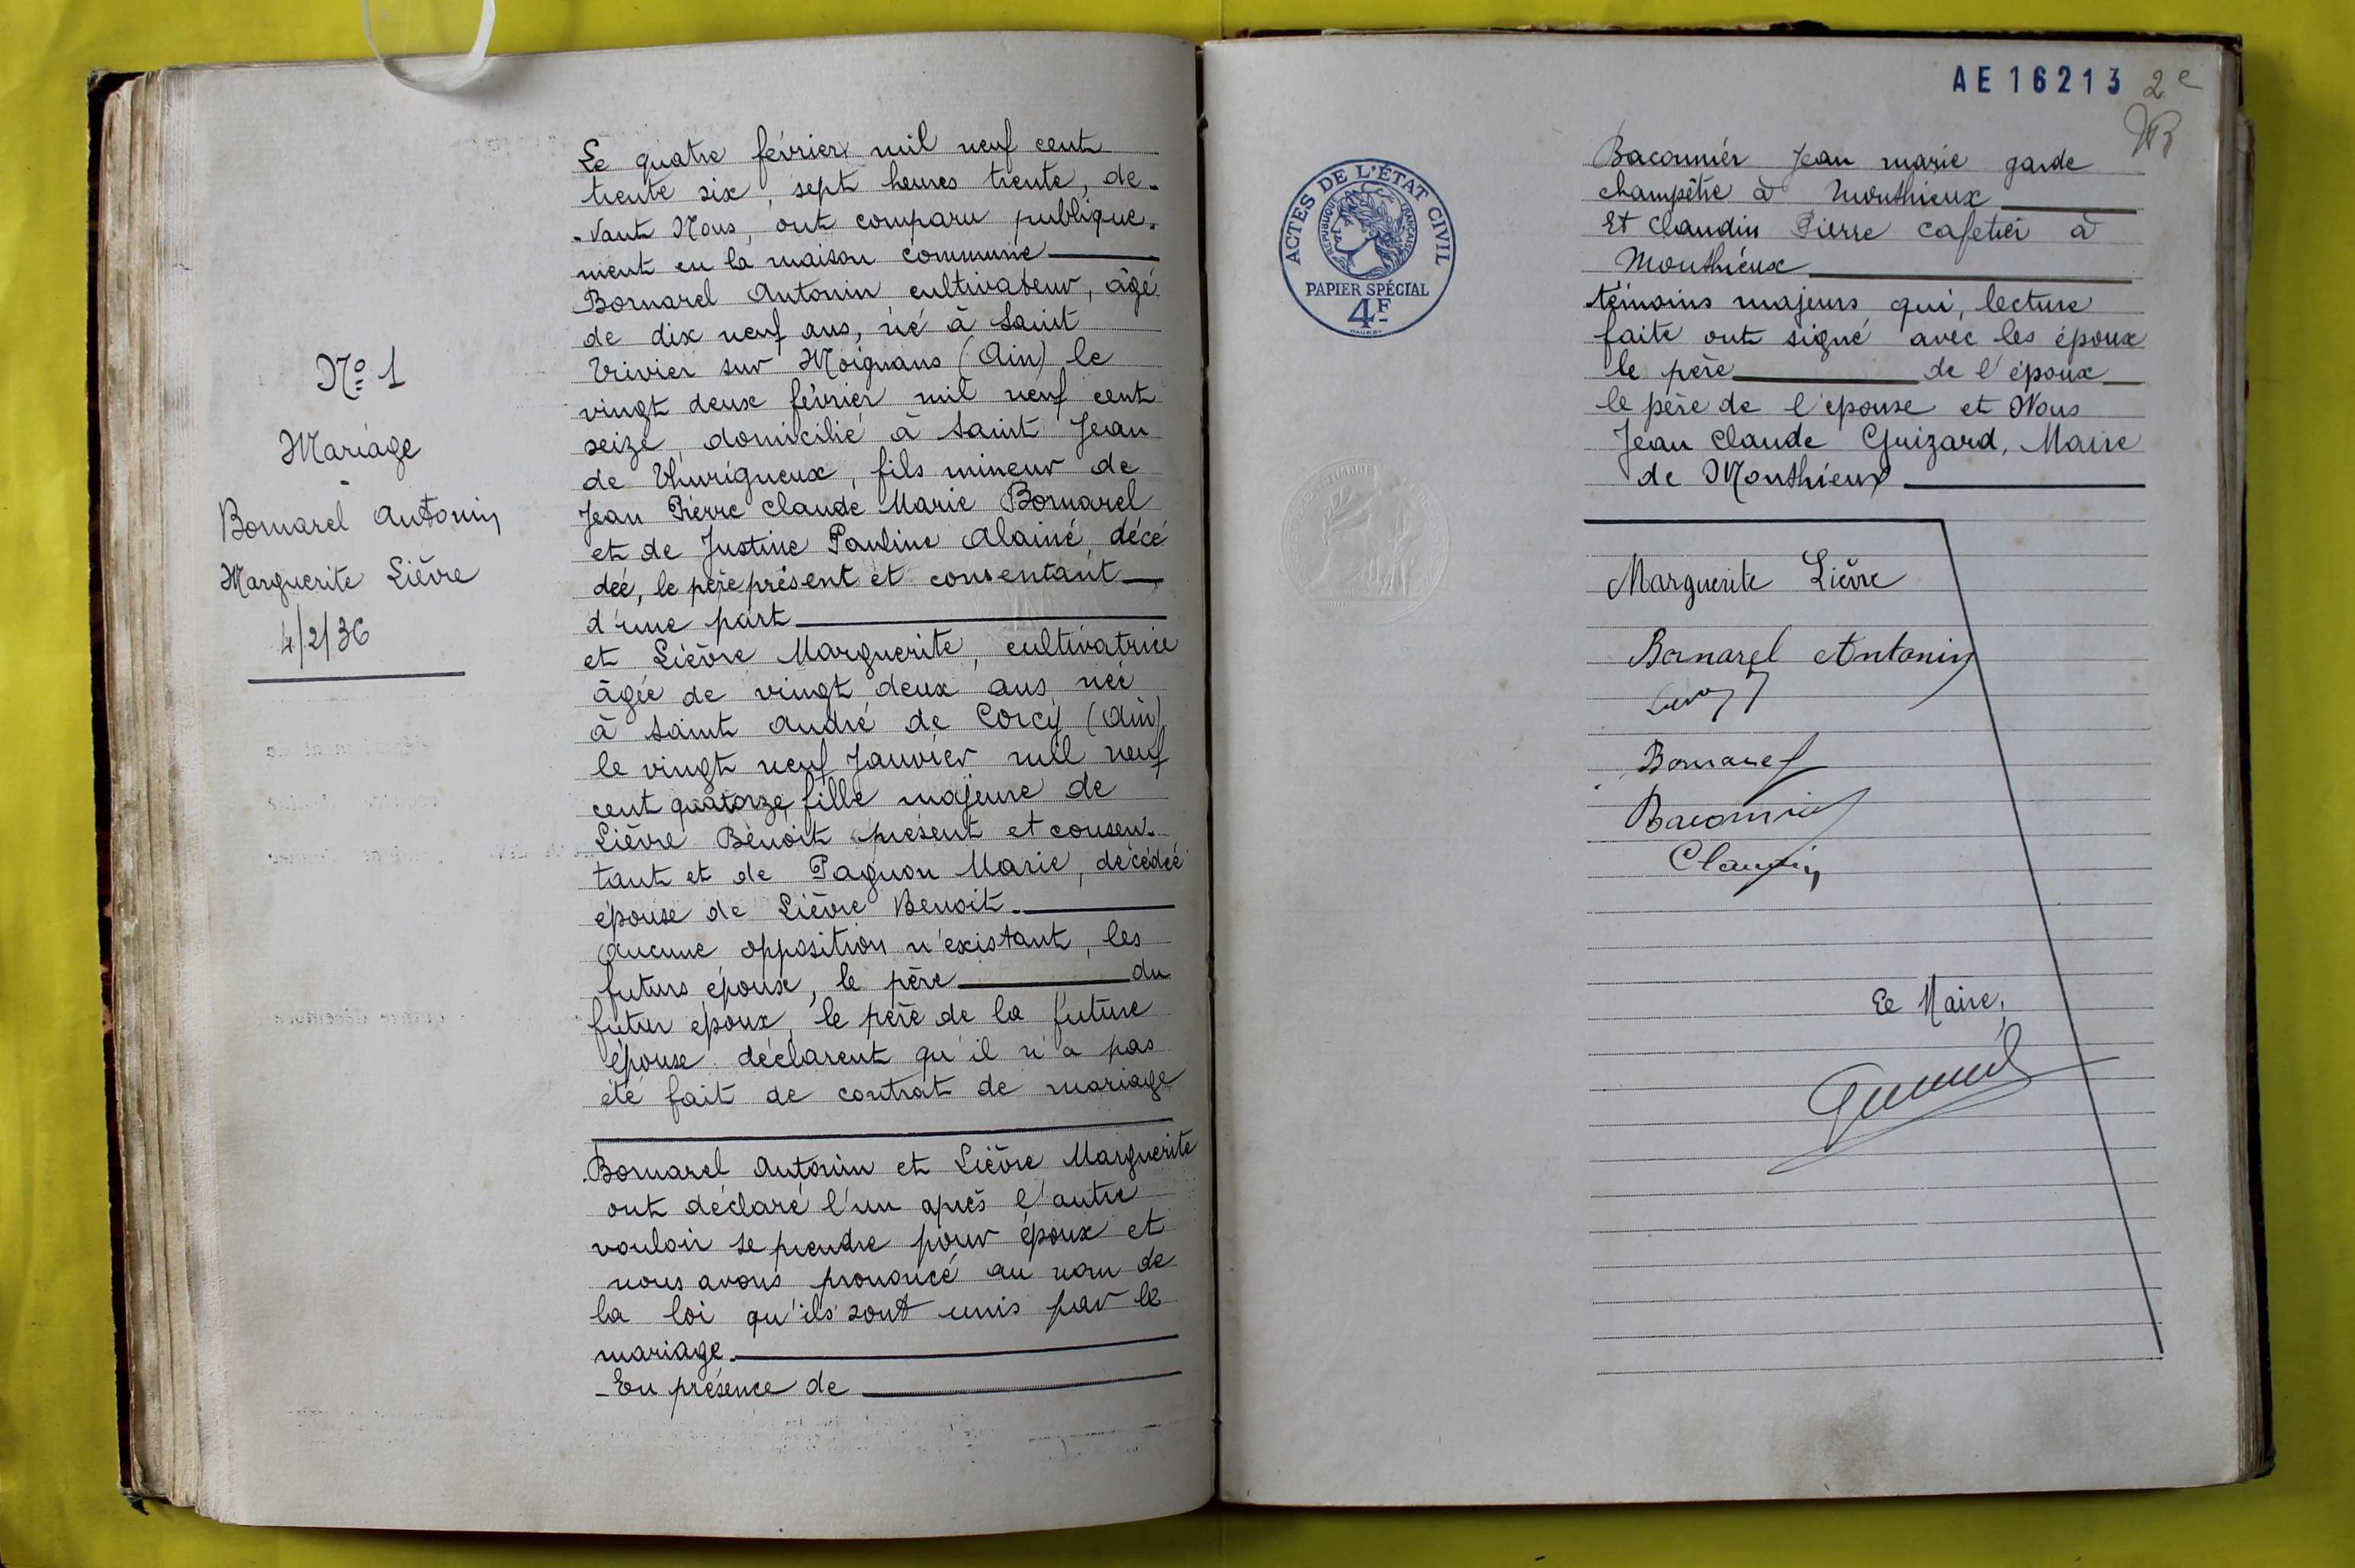 Nº 1
Mariage
Bornarel Antonin
Marguerite Lièvre
4/2/36
Le quatre février mil neuf cent
trente six, sept heures trente, de-
-vant Nous, ont comparu publique-
ment en la maison commune
Bornarel Antonin cultivateur, âgé
de dix neuf ans, né à Saint
Trivier sur Moignans (Ain) le
vingt deux février mil neuf cent
seize, domicilié à Saint Jean
de Thurigneux, fils mineur de
Jean Pierre Claude Marie Bornarel
et de Justine Pauline Alainé, décé
dée, le père présent et consentant
d'une part
et Lièvre Marguerite, cultivatrice
âgée de vingt deux ans née
à Saint André de Corcy (Ain)
le vingt neuf Janvier mil neuf
cent quatorze fille majeure de
Lièvre Benoit présent et consen-
tant et de Pagnon Marie, décédée
épouse de Lièvre Benoit.
Aucune opposition n'existant, les
futurs époux, le père du
futur époux, le père de la future
épouse déclarent qu'il n'a pas
été fait de contrat de mariage
Bornarel Antonin et Lièvre Marguerite
ont déclaré l'un après l'autre
vouloir se prendre pour époux et
nous avons prononcé au nom de
la loi qu'ils sont unis par le
mariage.
-En présence de
AE16213 2e
ACTES DE L'ÉTAT CIVIL
RÉPUBLIQUE FRANÇAISE
PAPIER SPÉCIAL
4F
Baconnier Jean marie garde
champêtre à Monthieux
Et Claudin Pierre cafetier à
Monthieux
témoins majeurs qui, lecture
faite ont signé avec les époux
le père de l'époux
le père de l'épouse et Nous
Jean Claude Guizard, Maire
de Monthieux
Marguerite Lièvre
Bornarel Antonin
Bornarel
Baconnier
Claudin
Le Maire,